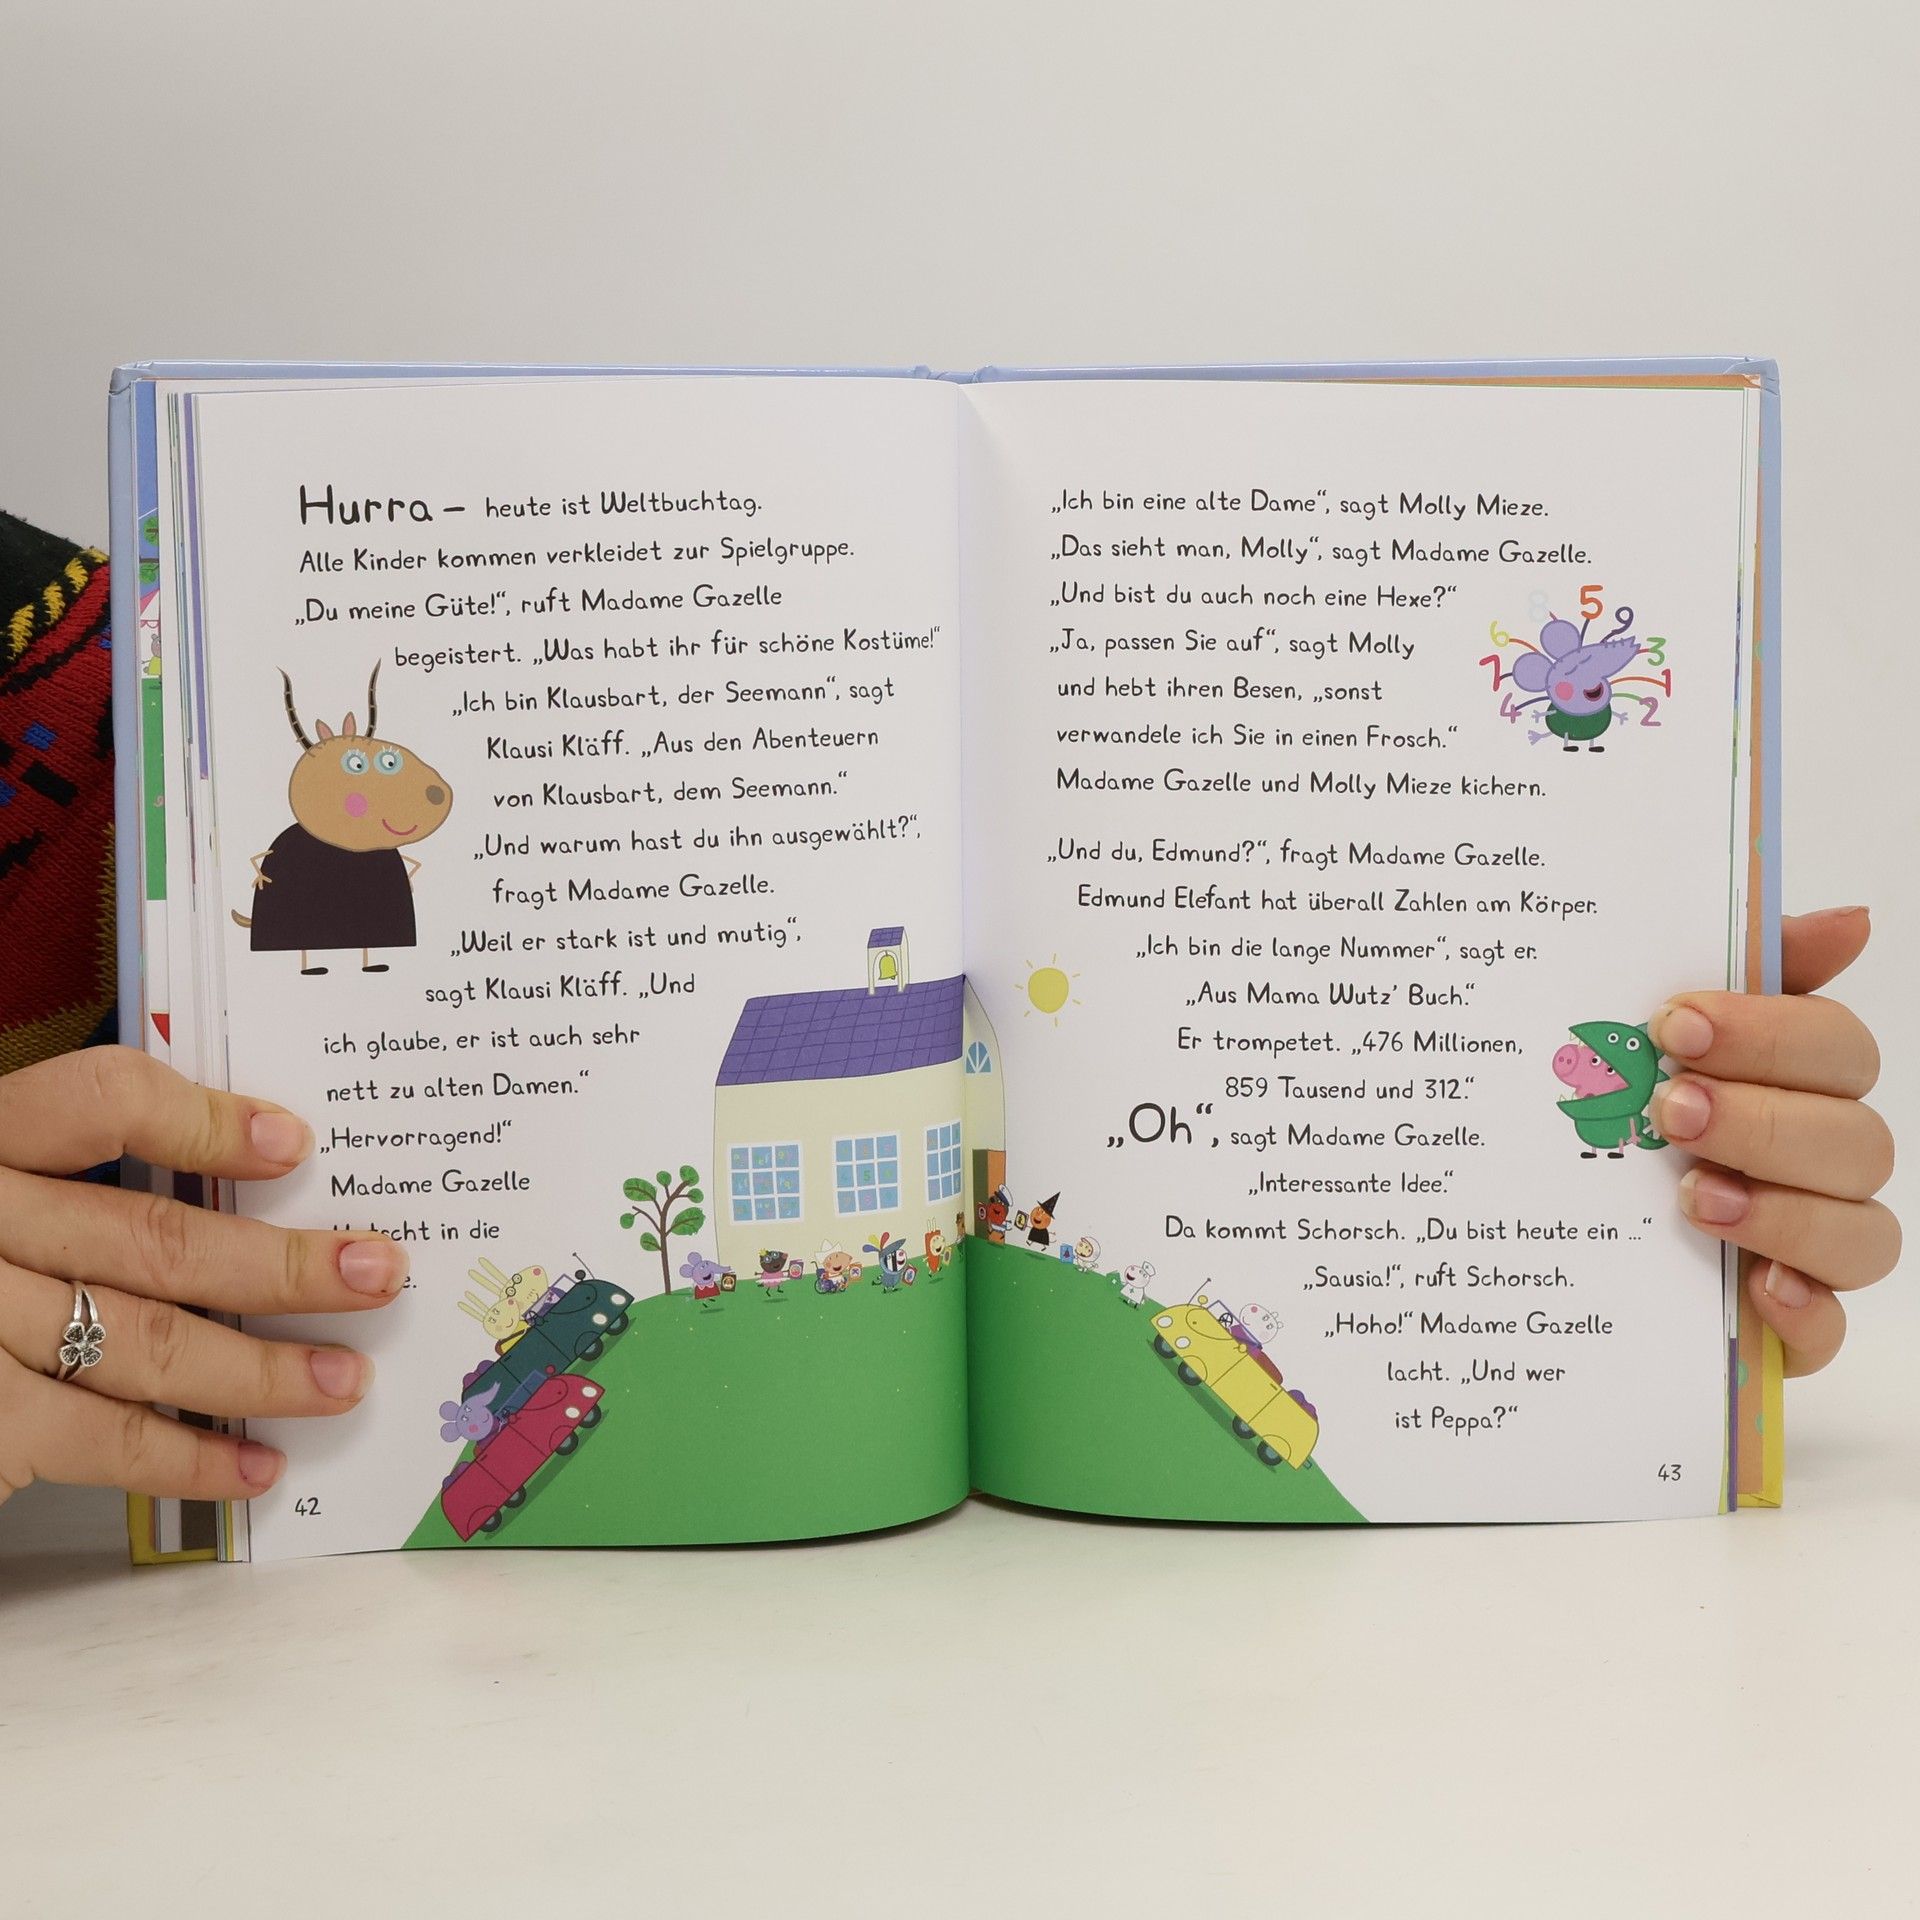 Hurra – heute ist Weltbuchtag.
Alle Kinder kommen verkleidet zur Spielgruppe.
„Du meine Güte!“, ruft Madame Gazelle
begeistert. „Was habt ihr für schöne Kostüme!“
„Ich bin Klausbart, der Seemann“, sagt
Klausi Kläff. „Aus den Abenteuern
von Klausbart, dem Seemann.“
„Und warum hast du ihn ausgewählt?“,
fragt Madame Gazelle.
„Weil er stark ist und mutig“,
sagt Klausi Kläff. „Und
ich glaube, er ist auch sehr
nett zu alten Damen.“
„Hervorragend!“
Madame Gazelle
in die
42
„Ich bin eine alte Dame“, sagt Molly Mieze.
„Das sieht man, Molly“, sagt Madame Gazelle.
„Und bist du auch noch eine Hexe?“
„Ja, passen Sie auf“, sagt Molly
und hebt ihren Besen, „sonst
verwandele ich Sie in einen Frosch.“
Madame Gazelle und Molly Mieze kichern.
8 5 9
6 3
7 1
4 2
„Und du, Edmund?“, fragt Madame Gazelle.
Edmund Elefant hat überall Zahlen am Körper.
„Ich bin die lange Nummer“, sagt er.
„Aus Mama Wutz’ Buch.“
Er trompetet. „476 Millionen,
859 Tausend und 312.“
„Oh“, sagt Madame Gazelle.
„Interessante Idee.“
Da kommt Schorsch. „Du bist heute ein ...“
„Sausia!“, ruft Schorsch.
„Hoho!“ Madame Gazelle
lacht. „Und wer
ist Peppa?“
43